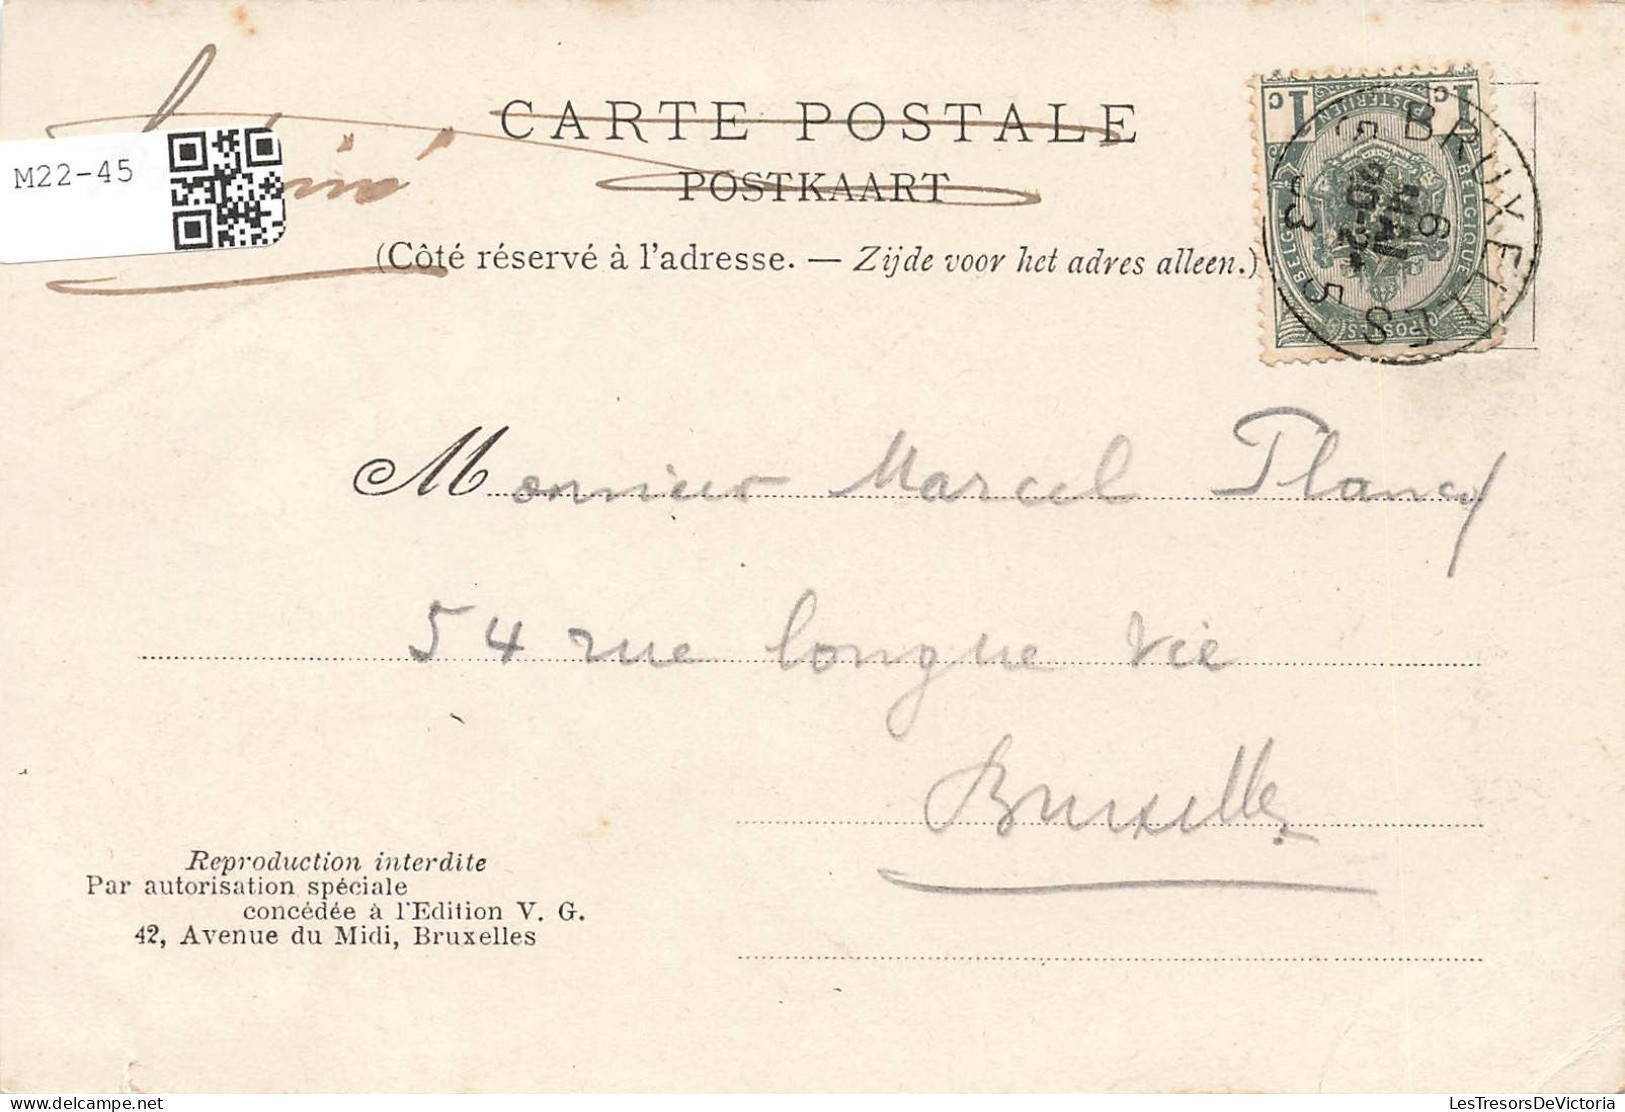 CARTE POSTALE
POSTKAART
M22-45
(Côté réservé à l'adresse. — Zijde voor het adres alleen.)
1c 1c
POSTERIJEN BELGIQUE
POSTES BELGIË
BRUXELLES 5
6
MAI
Monsieur Marcel Plancy
54 rue longue vie
Bruxelles
Reproduction interdite
Par autorisation spéciale
concédée à l'Edition V. G.
42, Avenue du Midi, Bruxelles
LesTresorsDeVictoria